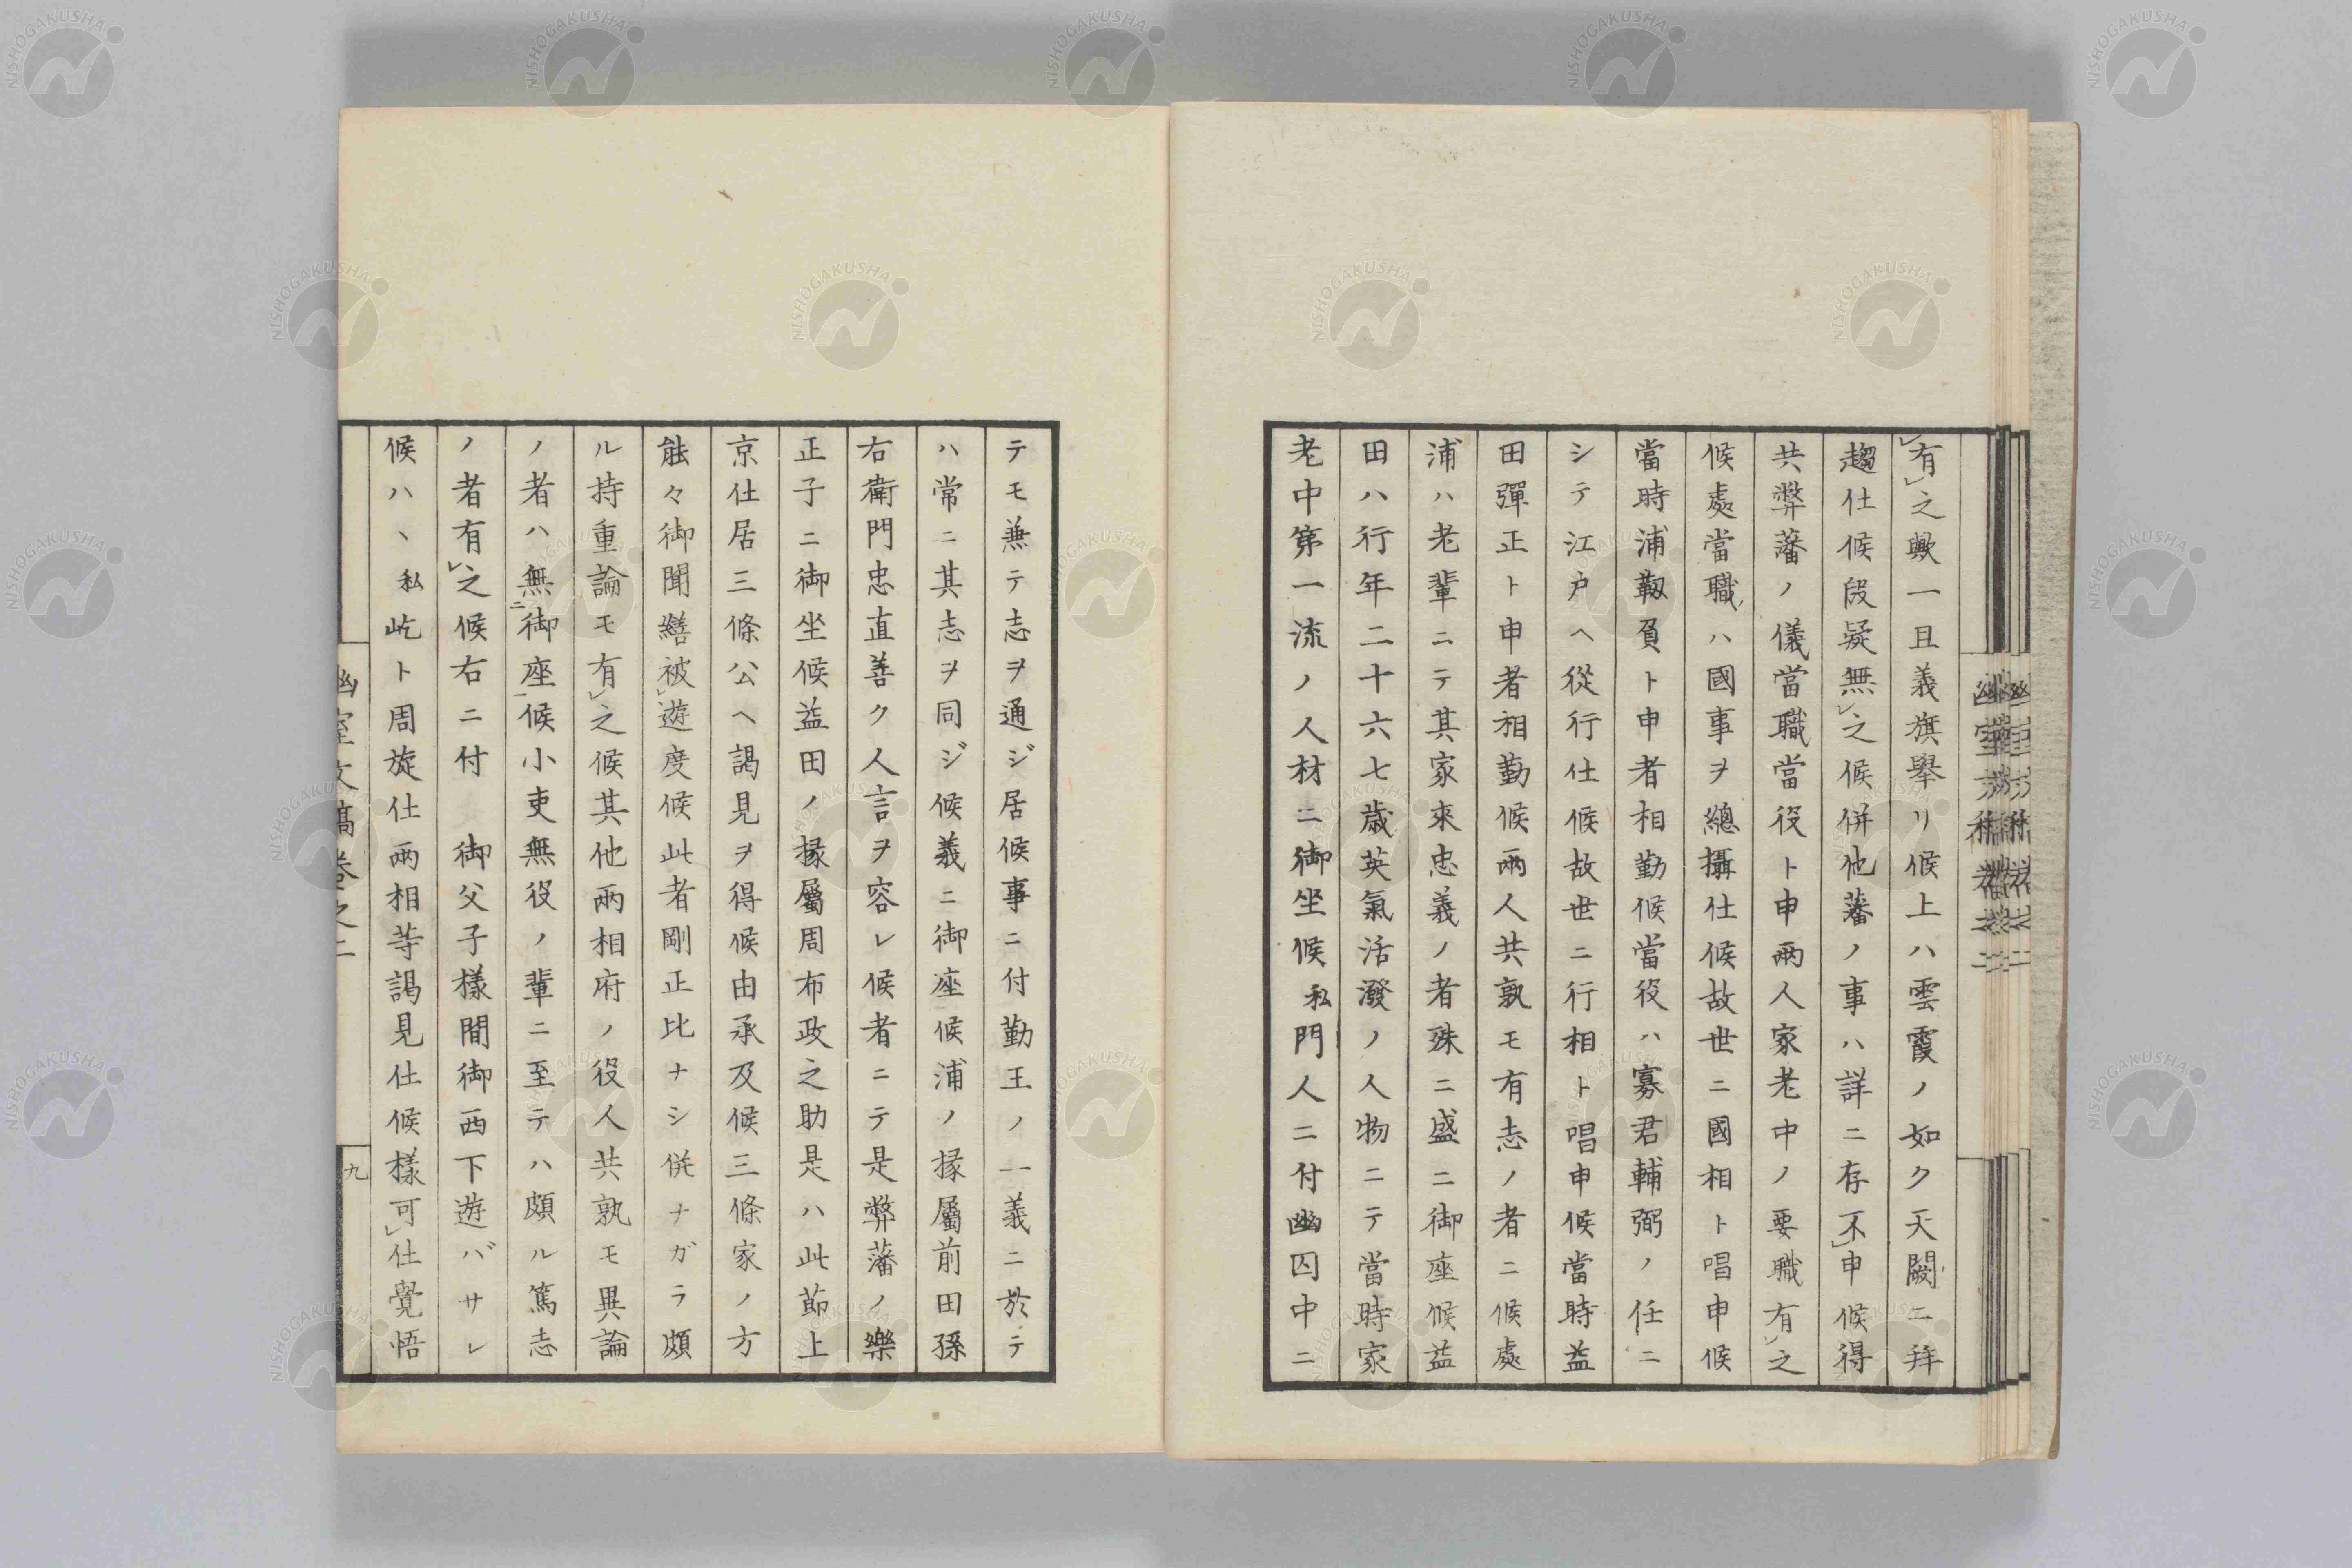 有㆑之歟一旦義旗舉リ候上ハ雲霞ノ如ク天闕ニ拜
趨仕候段疑無㆑之候併他藩ノ事ハ詳ニ存不㆑申候得
共弊藩ノ儀當職當役ト申兩人家老中ノ要職有㆑之
候處當職ハ國事ヲ總攝仕候故世ニ國相ト唱申候
當時浦靱負ト申者相勤候當役ハ寡君輔弼ノ任ニ
シテ江戶ヘ從行仕候故世ニ行相ト唱申候當時益
田彈正ト申者相勤候兩人共孰モ有志ノ者ニ候處
浦ハ老輩ニテ其家來忠義ノ者殊ニ盛ニ御座候益
田ハ行年二十六七歲英氣活潑ノ人物ニテ當時家
老中第一流ノ人材ニ御坐候私門人ニ付幽囚中ニ
テモ兼テ志ヲ通ジ居候事ニ付勤王ノ一義ニ於テ
ハ常ニ其志ヲ同ジ候義ニ御座候浦ノ掾屬前田孫
右衛門忠直善ク人言ヲ容レ候者ニテ是弊藩ノ樂
正子ニ御坐候益田ノ掾屬周布政之助是ハ此節上
京仕居三條公ヘ謁見ヲ得候由承及候三條家ノ方
能々御聞繕被㆑遊度候此者剛正比ナシ併ナガラ頗
ル持重論モ有㆑之候其他兩相府ノ役人共孰モ異論
ノ者ハ無㆓御座㆒候小吏無役ノ輩ニ至テハ頗ル篤志
ノ者有㆑之候右ニ付　御父子樣間御西下遊バサレ
候ハヽ私屹ト周旋仕兩相等謁見仕候樣可㆑仕覺悟
幽室文稿卷之二
九
NISHOGAKUSHA